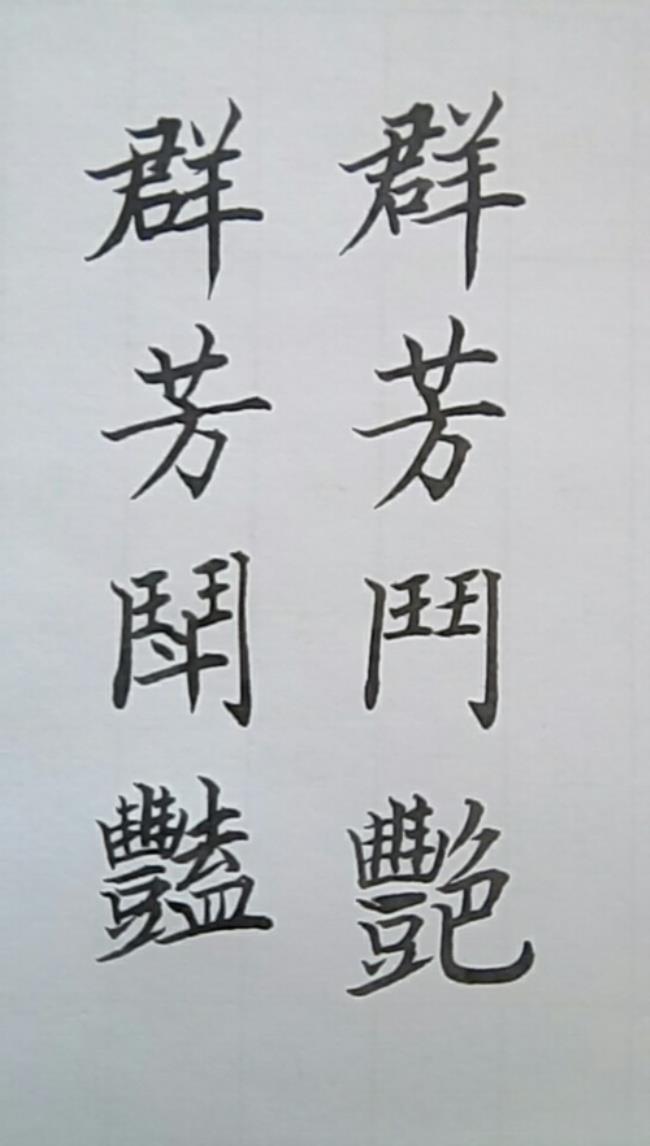 群芳鬥艷
群芳鬦豔